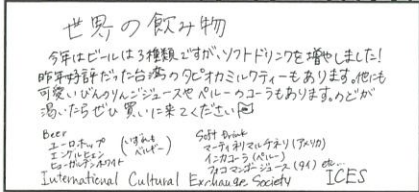 世界の飲み物
今年はビールは3種類ですが、ソフトドリンクを増やしました!
昨年好評だった台湾のタピオカミルクティーもあります。他にも
可愛いびんのりんごジュースやペルーのコーラもあります。のどが
渇いたらぜひ買いに来てください
Beer
ユーロホップ
エングルヒェン
ヒューガルデンホワイト
(いずれもベルギー)
Soft Drink
マーティネリマルケネリ(アメリカ)
インカコーラ(ペルー)
フォコマンゴージュース(タイ) etc...
International Cultural Exchange Society ICES